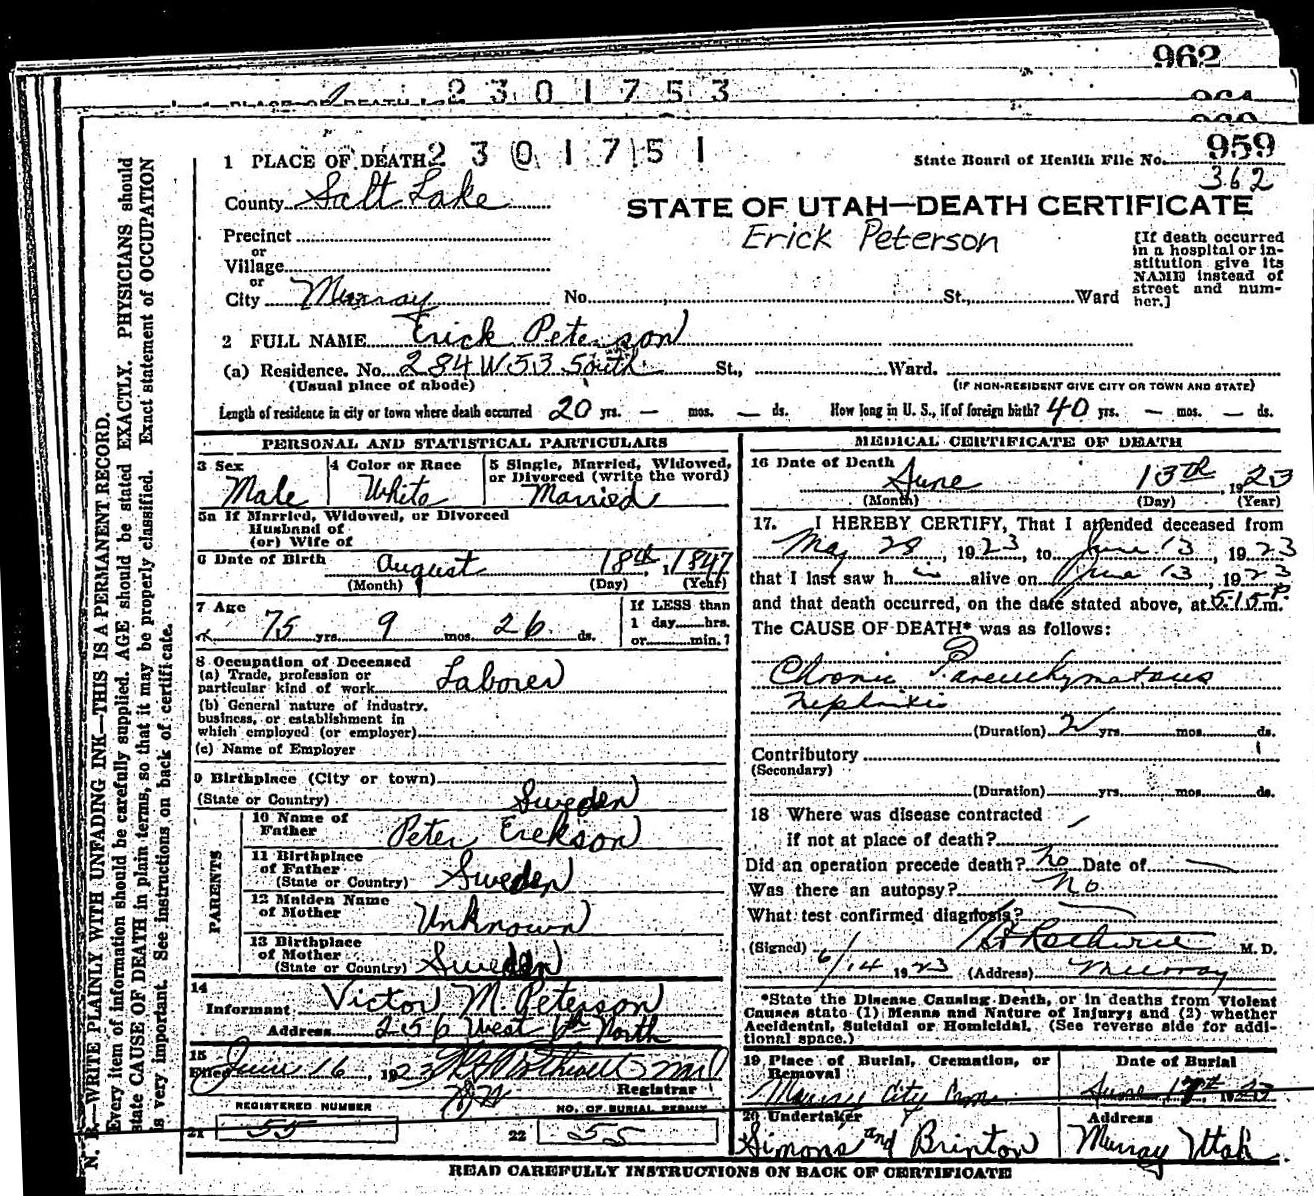 962
2301753
1 PLACE OF DEATH 2301751
State Board of Health File No. 959
362
County Salt Lake
STATE OF UTAH—DEATH CERTIFICATE
Erick Peterson
Precinct
or
Village
or
City Murray No. St., Ward
[If death occurred in a hospital or institution give its NAME instead of street and number.]
2 FULL NAME Erick Peterson
(a) Residence. No. 284 W 53 South St., Ward.
(Usual place of abode) (IF NON-RESIDENT GIVE CITY OR TOWN AND STATE)
Length of residence in city or town where death occurred 20 yrs. — mos. — ds. How long in U. S., if of foreign birth? 40 yrs. — mos. — ds.
PERSONAL AND STATISTICAL PARTICULARS
3 Sex Male
4 Color or Race White
5 Single, Married, Widowed, or Divorced (write the word) Married
5a If Married, Widowed, or Divorced
Husband of
(or) Wife of
6 Date of Birth August 18th, 1847
(Month) (Day) (Year)
7 Age 75 yrs. 9 mos. 26 ds.
If LESS than
1 day hrs.
or min.?
8 Occupation of Deceased
(a) Trade, profession or
particular kind of work Laborer
(b) General nature of industry,
business, or establishment in
which employed (or employer)
(c) Name of Employer
9 Birthplace (City or town)
(State or Country) Sweden
PARENTS
10 Name of Father Peter Erekson
11 Birthplace of Father (State or Country) Sweden
12 Maiden Name of Mother Unknown
13 Birthplace of Mother (State or Country) Sweden
14
Informant Victor M. Peterson
Address 256 West 6th North
15
Filed June 16, 1923
Registrar
REGISTERED NUMBER NO. OF BURIAL PERMIT
21 55 22 55
MEDICAL CERTIFICATE OF DEATH
16 Date of Death June 13th, 1923
(Month) (Day) (Year)
17. I HEREBY CERTIFY, That I attended deceased from
May 28, 1923, to June 13, 1923
that I last saw him alive on June 13, 1923
and that death occurred, on the date stated above, at 5:15 P.m.
The CAUSE OF DEATH* was as follows:
Chronic Parenchymatous
Nephritis
(Duration) 2 yrs. mos. ds.
Contributory
(Secondary)
(Duration) yrs. mos. ds.
18 Where was disease contracted
if not at place of death?
Did an operation precede death? No Date of
Was there an autopsy? No
What test confirmed diagnosis?
(Signed) M. D.
6/14 1923 (Address) Murray
*State the Disease Causing Death, or in deaths from Violent
Causes state (1) Means and Nature of Injury; and (2) whether
Accidental, Suicidal or Homicidal. (See reverse side for additional space.)
19 Place of Burial, Cremation, or Removal Murray City Cem.
Date of Burial June 17th, 1923
20 Undertaker Simons and Brinton
Address Murray Utah
READ CAREFULLY INSTRUCTIONS ON BACK OF CERTIFICATE
N. B.—WRITE PLAINLY WITH UNFADING INK—THIS IS A PERMANENT RECORD.
Every item of information should be carefully supplied. AGE should be stated EXACTLY. PHYSICIANS should
state CAUSE OF DEATH in plain terms, so that it may be properly classified. Exact statement of OCCUPATION
is very important. See instructions on back of certificate.